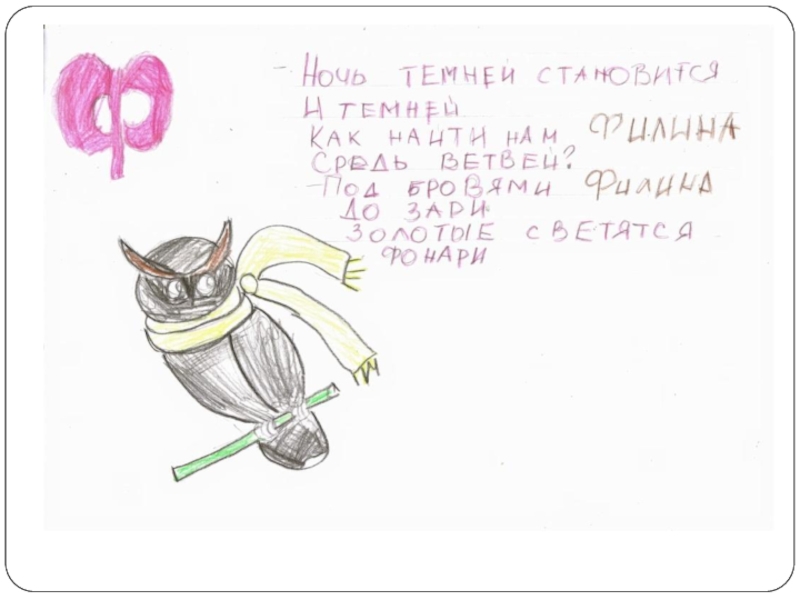 Ф
- НОЧЬ ТЕМНЕЙ СТАНОВИТСЯ
И ТЕМНЕЙ
КАК НАЙТИ НАМ ФИЛИНА
СРЕДЬ ВЕТВЕЙ?
- ПОД БРОВЯМИ ФИЛИНА
ДО ЗАРИ
ЗОЛОТЫЕ СВЕТЯТСЯ
ФОНАРИ